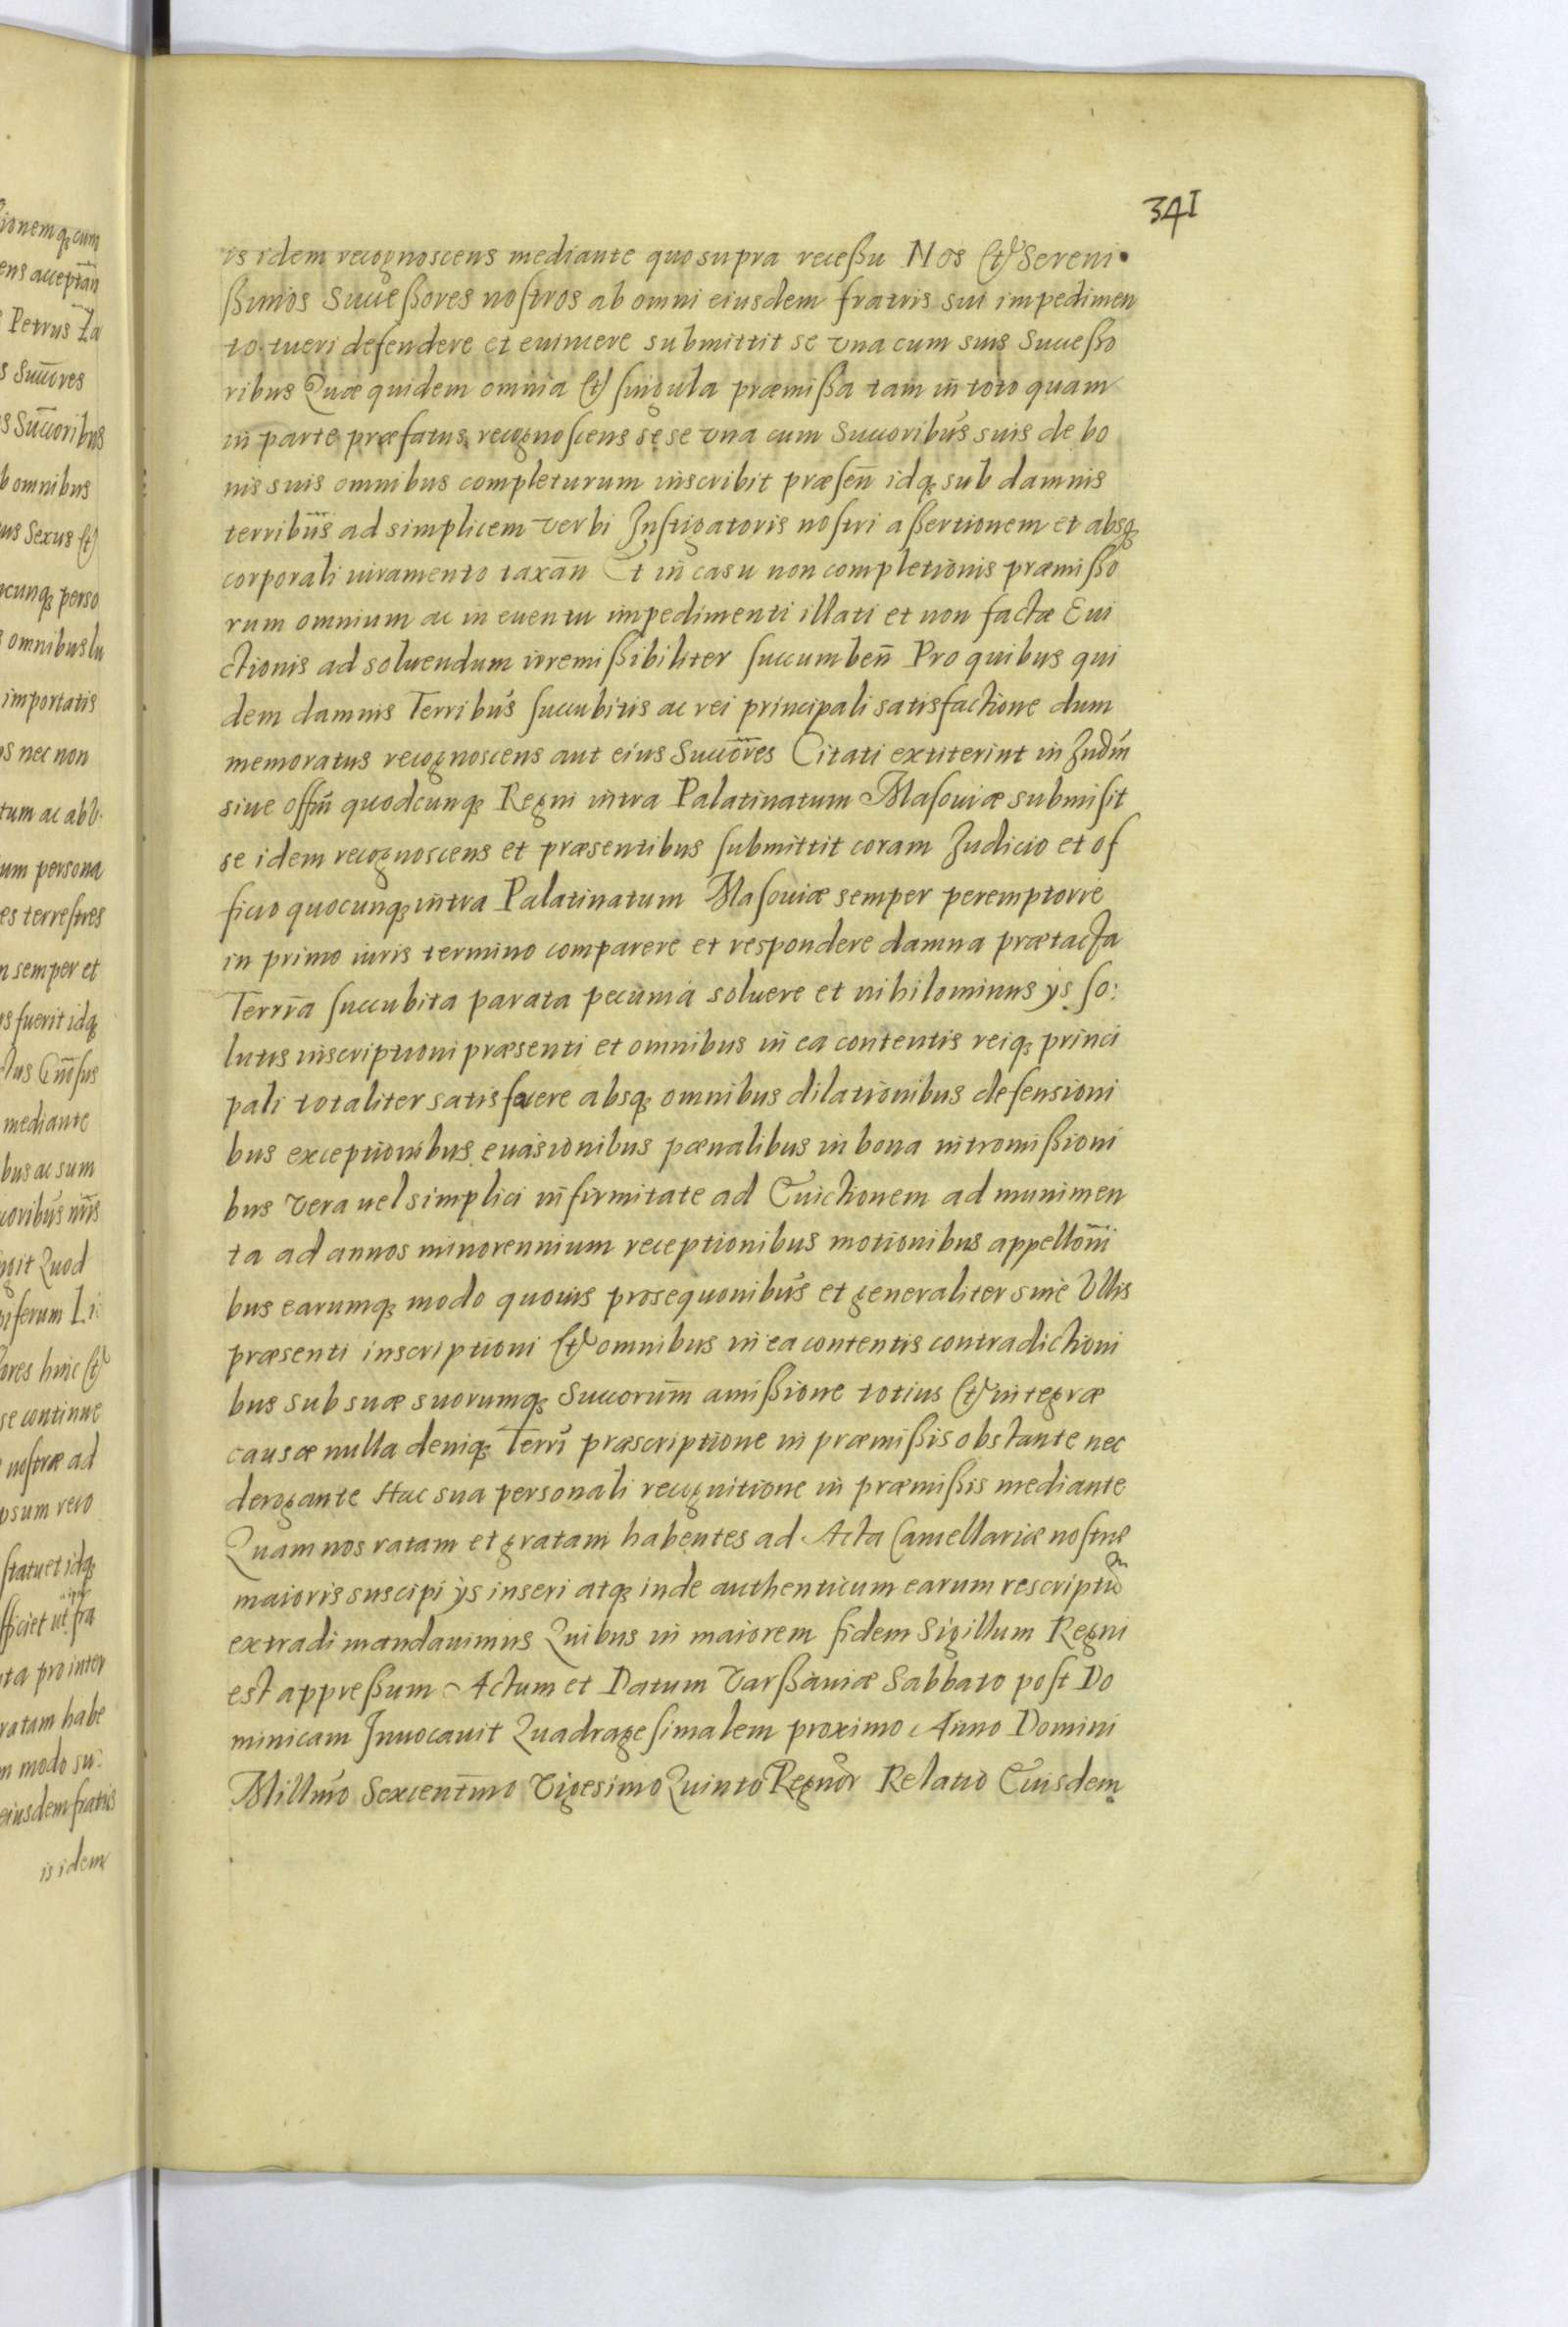 341
is idem recognoscens mediante quo supra recessu Nos et Sereni
ssimos Successores nostros ab omni eiusdem fratris sui impedimen
to tueri defendere et euincere submittit se vna cum suis Successo
ribus Quæ quidem omnia et singula præmissa tam in toto quam
in parte præfatus recognoscens sese vna cum Succoribus suis de bo
nis suis omnibus completurum inscribit præsen̄ idq; sub damnis
terribus̄ ad simplicem verbi Instigatoris nostri assertionem et absq;
corporali iuramento taxan̄ Et in casu non completionis præmisso
rum omnium ac in euentu impedimenti illati et non factæ Eui
ctionis ad soluendum irremissibiliter succumben̄ Pro quibus qui
dem damnis Terribus succubitis ac rei principali satisfactione dum
memoratus recognoscens aut eius Succores̄ Citati extiterint in Judm̄
siue offm̄ quodcunq; Regni intra Palatinatum Masouiæ submisit
se idem recognoscens et præsentibus submittit coram Judicio et of
ficio quocunq; intra Palatinatum Masouiæ semper peremptorie
in primo iuris termino comparere et respondere damna prætacta
Terrīa succubita parata pecunia soluere et nihilominus ijs so:
lutis inscriptioni præsenti et omnibus in ea contentis reiq; princi
pali totaliter satisfacere absq; omnibus dilationibus defensioni
bus exceptionibus euasionibus pænalibus in bona intromissioni
bus vera uel simplici infirmitate ad Euictionem ad munimen
ta ad annos minorennium receptionibus motionibus appellon̄i
bus earumq; modo quouis prosequonibus et generaliter sine Ullis
præsenti inscriptioni et omnibus in ea contentis contradictioni
bus sub suæ suorumq; Succorum̄ amissione totius et integræ
causæ nulla deniq; Terrī præscriptione in præmissis obstante nec
derogante Hac sua personali recognitione in præmissis mediante
Quam nos ratam et gratam habentes ad Acta Cancellariæ nostræ
maioris suscipi ijs inseri atq; inde authenticum earum rescriptum
extradi mandauimus Quibus in maiorem fidem Sigillum Regni
est appressum Actum et Datum Varssauiæ Sabbato post Do
minicam Inuocauit Quadragesimalem proximo Anno Domini
Millm̄o Sexcentm̄o Vigesimo Quinto Regnor Relatio Eiusdem